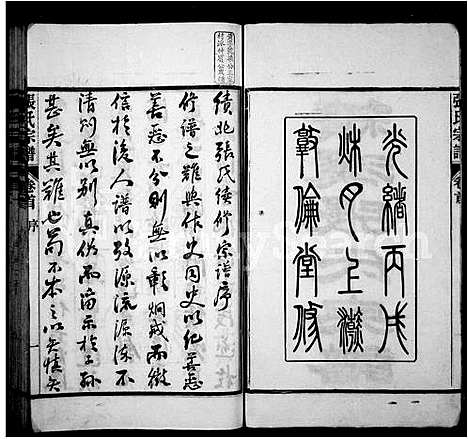 張氏宗譜 卷首
光緒丙戌
秌月上澣
敦倫堂修
績北張氏續修宗譜序
修譜之難與作史同史以紀善惡
善惡不分則無以彰炯戒而徵
信於後人譜以攷源流源流不
清則無以別真偽而留示於子孫
甚矣其難也苟不本之以矢慎矢
張氏宗譜 卷首 序